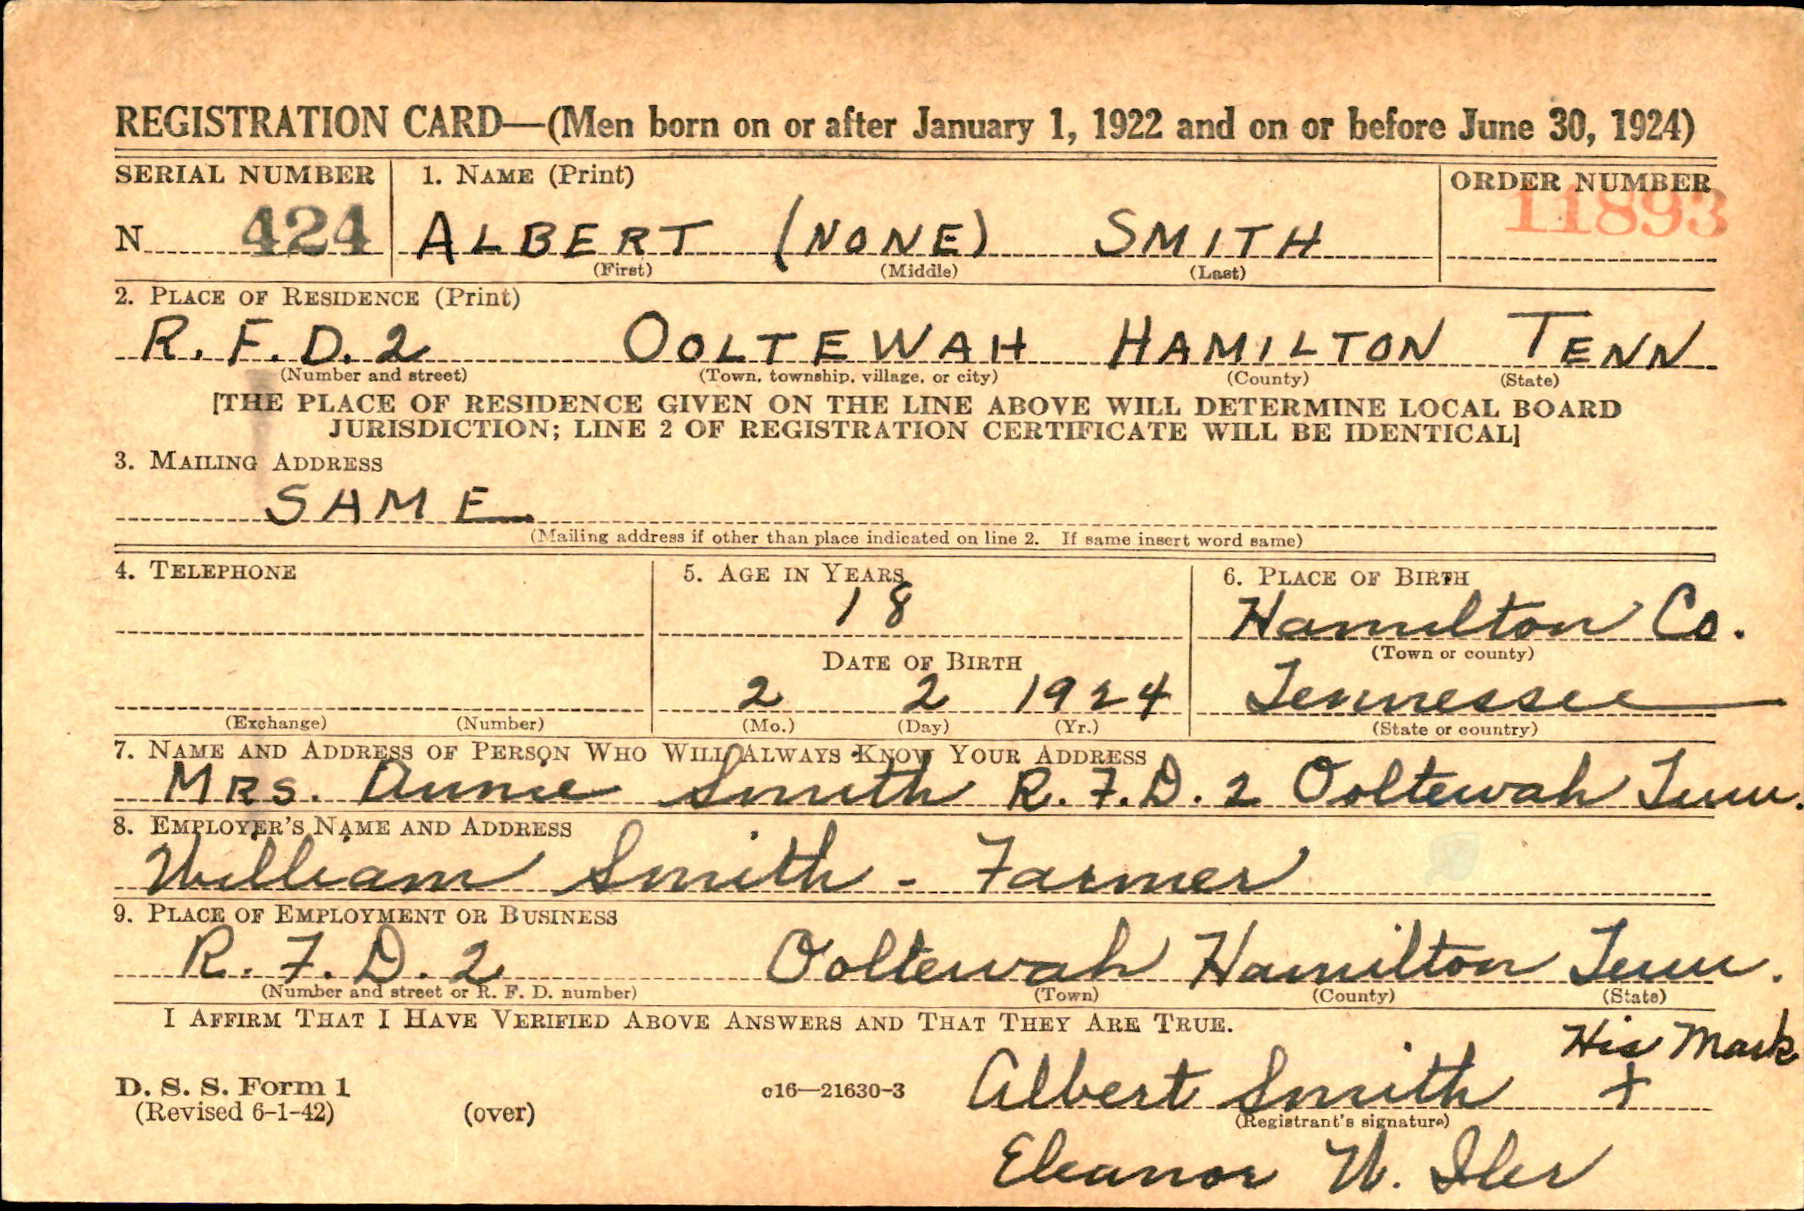 REGISTRATION CARD—(Men born on or after January 1, 1922 and on or before June 30, 1924)
SERIAL NUMBER 1. NAME (Print) ORDER NUMBER
N 424 ALBERT (NONE) SMITH 11893
(First) (Middle) (Last)
2. PLACE OF RESIDENCE (Print)
R. F. D. 2 OOLTEWAH HAMILTON TENN
(Number and street) (Town, township, village, or city) (County) (State)
[THE PLACE OF RESIDENCE GIVEN ON THE LINE ABOVE WILL DETERMINE LOCAL BOARD
JURISDICTION; LINE 2 OF REGISTRATION CERTIFICATE WILL BE IDENTICAL]
3. MAILING ADDRESS
SAME
(Mailing address if other than place indicated on line 2. If same insert word same)
4. TELEPHONE 5. AGE IN YEARS 6. PLACE OF BIRTH
18 Hamilton Co.
DATE OF BIRTH (Town or county)
2 2 1924 Tennessee
(Exchange) (Number) (Mo.) (Day) (Yr.) (State or country)
7. NAME AND ADDRESS OF PERSON WHO WILL ALWAYS KNOW YOUR ADDRESS
MRS. Annie Smith R. F. D. 2 Ooltewah Tenn.
8. EMPLOYER'S NAME AND ADDRESS
William Smith - Farmer
9. PLACE OF EMPLOYMENT OR BUSINESS
R. F. D. 2 Ooltewah Hamilton Tenn.
(Number and street or R. F. D. number) (Town) (County) (State)
I AFFIRM THAT I HAVE VERIFIED ABOVE ANSWERS AND THAT THEY ARE TRUE.
His Mark
D. S. S. Form 1 c16—21630-3 Albert Smith +
(Revised 6-1-42) (over) (Registrant's signature)
Eleanor W. Iler